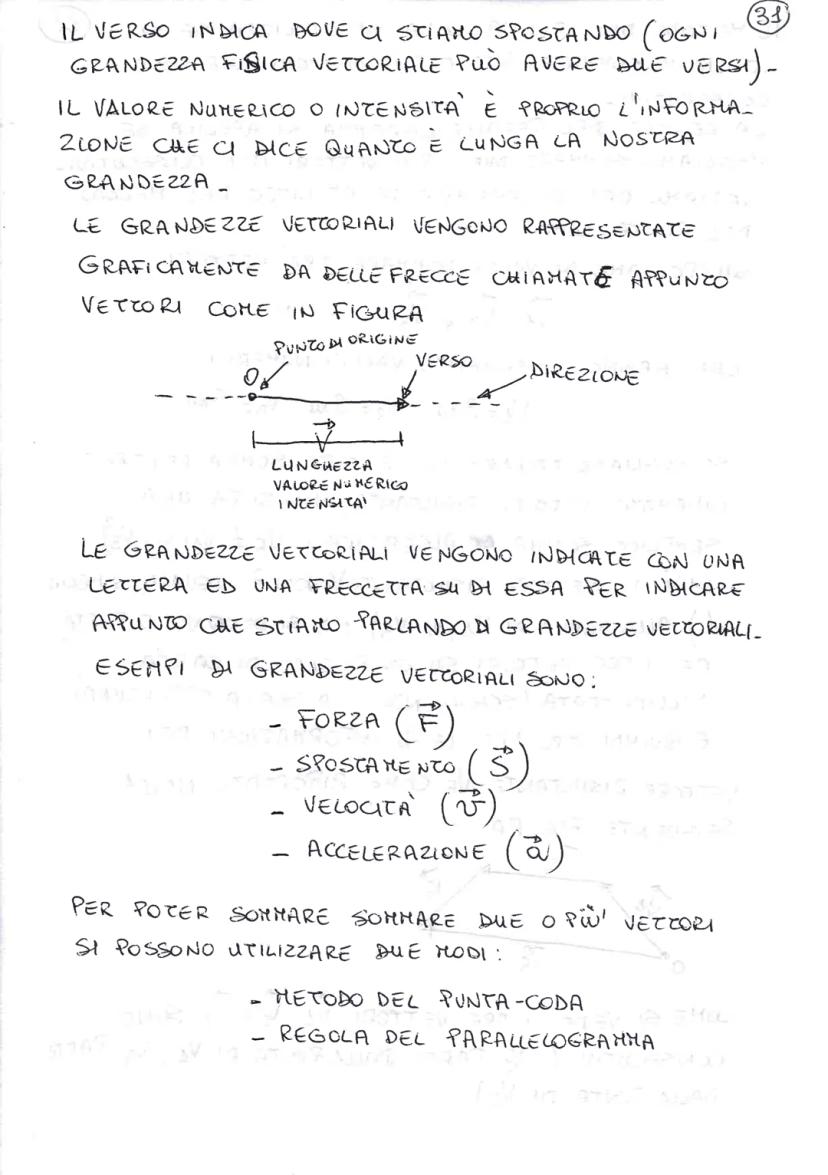 31
IL VERSO INDICA DOVE CI STIAMO SPOSTANDO (OGNI
GRANDEZZA FISICA VETTORIALE PUÒ AVERE DUE VERSI)-
IL VALORE NUMERICO O INTENSITA' È PROPRIO L'INFORMA-
ZIONE CHE CI DICE QUANTO È LUNGA LA NOSTRA
GRANDEZZA-
LE GRANDEZZE VETTORIALI VENGONO RAPPRESENTATE
GRAFICAMENTE DA DELLE FRECCE CHIAMATE APPUNTO
VETTORI COME IN FIGURA
PUNTO DI ORIGINE
VERSO
DIREZIONE
O
V⃗
LUNGHEZZA
VALORE NUMERICO
INTENSITA'
LE GRANDEZZE VETTORIALI VENGONO INDICATE CON UNA
LETTERA ED UNA FRECCETTA SU DI ESSA PER INDICARE
APPUNTO CHE STIAMO PARLANDO DI GRANDEZZE VETTORIALI-
ESEMPI DI GRANDEZZE VETTORIALI SONO:
- FORZA (F⃗)
- SPOSTAMENTO (S⃗)
- VELOCITÀ (v⃗)
- ACCELERAZIONE (a⃗)
PER POTER SOMMARE SOMMARE DUE O PIÙ' VETTORI
SI POSSONO UTILIZZARE DUE MODI:
- METODO DEL PUNTA-CODA
- REGOLA DEL PARALLELOGRAMMA